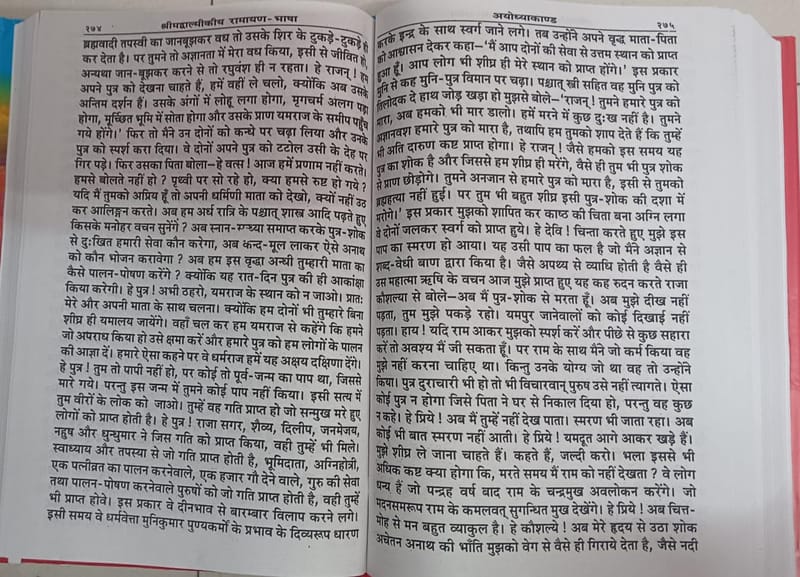 २७४
श्रीमद्वाल्मीकीय रामायण-भाषा
ब्रह्मवादी तपस्वी का जानबूझकर वध तो उसके शिर के टुकड़े-टुकड़े ही
कर देता है। पर तुमने तो अज्ञानता में मेरा वध किया, इसी से जीवित हो,
अन्यथा जान-बूझकर करने से तो रघुवंश ही न रहता। हे राजन् ! हम
अपने पुत्र को देखना चाहते हैं, हमें वहीं ले चलो, क्योंकि अब उसके
अन्तिम दर्शन हैं। उसके अंगों में लोहू लगा होगा, मृगचर्म अलग पड़ा
होगा, मूर्च्छित भूमि में सोता होगा और उसके प्राण यमराज के समीप पहुँच
गये होंगे।' फिर तो मैंने उन दोनों को कन्धे पर चढ़ा लिया और उनके
पुत्र को स्पर्श करा दिया। वे दोनों अपने पुत्र को टटोल उसी के देह पर
गिर पड़े। फिर उसका पिता बोला—हे वत्स ! आज हमें प्रणाम नहीं करते।
हमसे बोलते नहीं हो ? पृथ्वी पर सो रहे हो, क्या हमसे रुष्ट हो गये ?
यदि मैं तुमको अप्रिय हूँ तो अपनी धर्मिणी माता को देखो, क्यों नहीं उठ
कर आलिङ्गन करते। अब हम अर्ध रात्रि के पश्चात् शास्त्र आदि पढ़ते हुए
किसके मनोहर वचन सुनेंगे ? अब स्नान-सन्ध्या समाप्त करके पुत्र-शोक
से दुःखित हमारी सेवा कौन करेगा, अब कन्द-मूल लाकर ऐसे अनाथ
को कौन भोजन करावेगा ? अब हम इस वृद्धा अन्धी तुम्हारी माता का
कैसे पालन-पोषण करेंगे ? क्योंकि यह रात-दिन पुत्र की ही आकांक्षा
किया करेगी। हे पुत्र ! अभी ठहरो, यमराज के स्थान को न जाओ। प्रातः
मेरे और अपनी माता के साथ चलना। क्योंकि हम दोनों भी तुम्हारे बिना
शीघ्र ही यमालय जायेंगे। वहाँ चल कर हम यमराज से कहेंगे कि हमने
जो अपराध किया हो उसे क्षमा करें और हमारे पुत्र को हम लोगों के पालन
की आज्ञा दें। हमारे ऐसा कहने पर वे धर्मराज हमें यह अक्षय दक्षिणा देंगे।
हे पुत्र ! तुम तो पापी नहीं हो, पर कोई तो पूर्व-जन्म का पाप था, जिससे
मारे गये। परन्तु इस जन्म में तुमने कोई पाप नहीं किया। इसी सत्य में
तुम वीरों के लोक को जाओ। तुम्हें वह गति प्राप्त हो जो सन्मुख मरे हुए
लोगों को प्राप्त होती है। हे पुत्र ! राजा सगर, शैव्य, दिलीप, जनमेजय,
नहुष और धुन्धुमार ने जिस गति को प्राप्त किया, वही तुम्हें भी मिले।
स्वाध्याय और तपस्या से जो गति प्राप्त होती है, भूमिदाता, अग्निहोत्री,
एक पत्नीव्रत का पालन करनेवाले, एक हजार गौ देने वाले, गुरु की सेवा
तथा पालन-पोषण करनेवाले पुरुषों को जो गति प्राप्त होती है, वही तुम्हें
भी प्राप्त होवे। इस प्रकार वे दीनभाव से बारम्बार विलाप करने लगे।
इसी समय वे धर्मवेत्ता मुनिकुमार पुण्यकर्मों के प्रभाव के दिव्यरूप धारण
अयोध्याकाण्ड
२७५
करके इन्द्र के साथ स्वर्ग जाने लगे। तब उन्होंने अपने वृद्ध माता-पिता
को आश्वासन देकर कहा—'मैं आप दोनों की सेवा से उत्तम स्थान को प्राप्त
हुआ हूँ। आप लोग भी शीघ्र ही मेरे स्थान को प्राप्त होंगे।' इस प्रकार
मुनि से कह मुनि-पुत्र विमान पर चढ़ा। पश्चात् स्त्री सहित वह मुनि पुत्र को
तिलोदक दे हाथ जोड़ खड़ा हो मुझसे बोले—'राजन् ! तुमने हमारे पुत्र को
मारा, अब हमको भी मार डालो। हमें मरने में कुछ दुःख नहीं है। तुमने
अज्ञानवश हमारे पुत्र को मारा है, तथापि हम तुमको शाप देते हैं कि तुम्हें
भी अति दारुण कष्ट प्राप्त होगा। हे राजन् ! जैसे हमको इस समय यह
पुत्र का शोक है और जिससे हम शीघ्र ही मरेंगे, वैसे ही तुम भी पुत्र शोक
से प्राण छोड़ोगे। तुमने अनजान से हमारे पुत्र को मारा है, इसी से तुमको
ब्रह्महत्या नहीं हुई। पर तुम भी बहुत शीघ्र इसी पुत्र-शोक की दशा में
मरोगे।' इस प्रकार मुझको शापित कर काष्ठ की चिता बना अग्नि लगा
वे दोनों जलकर स्वर्ग को प्राप्त हुये। हे देवि ! चिन्ता करते हुए मुझे इस
पाप का स्मरण हो आया। यह उसी पाप का फल है जो मैंने अज्ञान से
शब्द-वेधी बाण द्वारा किया है। जैसे अपथ्य से व्याधि होती है वैसे ही
उस महात्मा ऋषि के वचन आज मुझे प्राप्त हुए यह कह रुदन करते राजा
कौशल्या से बोले—अब मैं पुत्र-शोक से मरता हूँ। अब मुझे दीख नहीं
पड़ता, तुम मुझे पकड़े रहो। यमपुर जानेवालों को कोई दिखाई नहीं
पड़ता। हाय ! यदि राम आकर मुझको स्पर्श करें और पीछे से कुछ सहारा
करें तो अवश्य मैं जी सकता हूँ। पर राम के साथ मैंने जो कर्म किया वह
मुझे नहीं करना चाहिए था। किन्तु उनके योग्य जो था वह तो उन्होंने
किया। पुत्र दुराचारी भी हो तो भी विचारवान् पुरुष उसे नहीं त्यागते। ऐसा
कोई पुत्र न होगा जिसे पिता ने घर से निकाल दिया हो, परन्तु वह कुछ
न कहे। हे प्रिये ! अब मैं तुम्हें नहीं देख पाता। स्मरण भी जाता रहा। अब
कोई भी बात स्मरण नहीं आती। हे प्रिये ! यमदूत आगे आकर खड़े हैं।
मुझे शीघ्र ले जाना चाहते हैं। कहते हैं, जल्दी करो। भला इससे भी
अधिक कष्ट क्या होगा कि, मरते समय मैं राम को नहीं देखता ? वे लोग
धन्य हैं जो पन्द्रह वर्ष बाद राम के चन्द्रमुख अवलोकन करेंगे। जो
मदनसमरूप राम के कमलवत् सुगन्धित मुख देखेंगे। हे प्रिये ! अब चित्त-
मोह से मन बहुत व्याकुल है। हे कौशल्ये ! अब मेरे हृदय से उठा शोक
अचेतन अनाथ की भाँति मुझको वेग से वैसे ही गिराये देता है, जैसे नदी